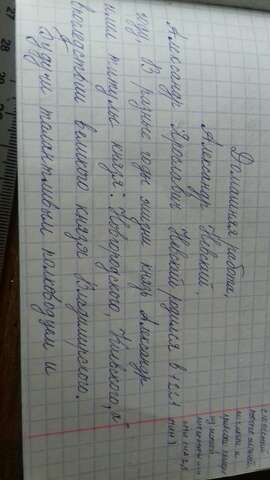 Домашняя работа.
Александр Невский.
Александр Ярославич Невский родился в 1221
году. В разные годы жизни князь Александр
имел титулы князя: Новгородского, Киевского, а
впоследствии великого князя Владимирского.
Будучи талантливым полководцем и